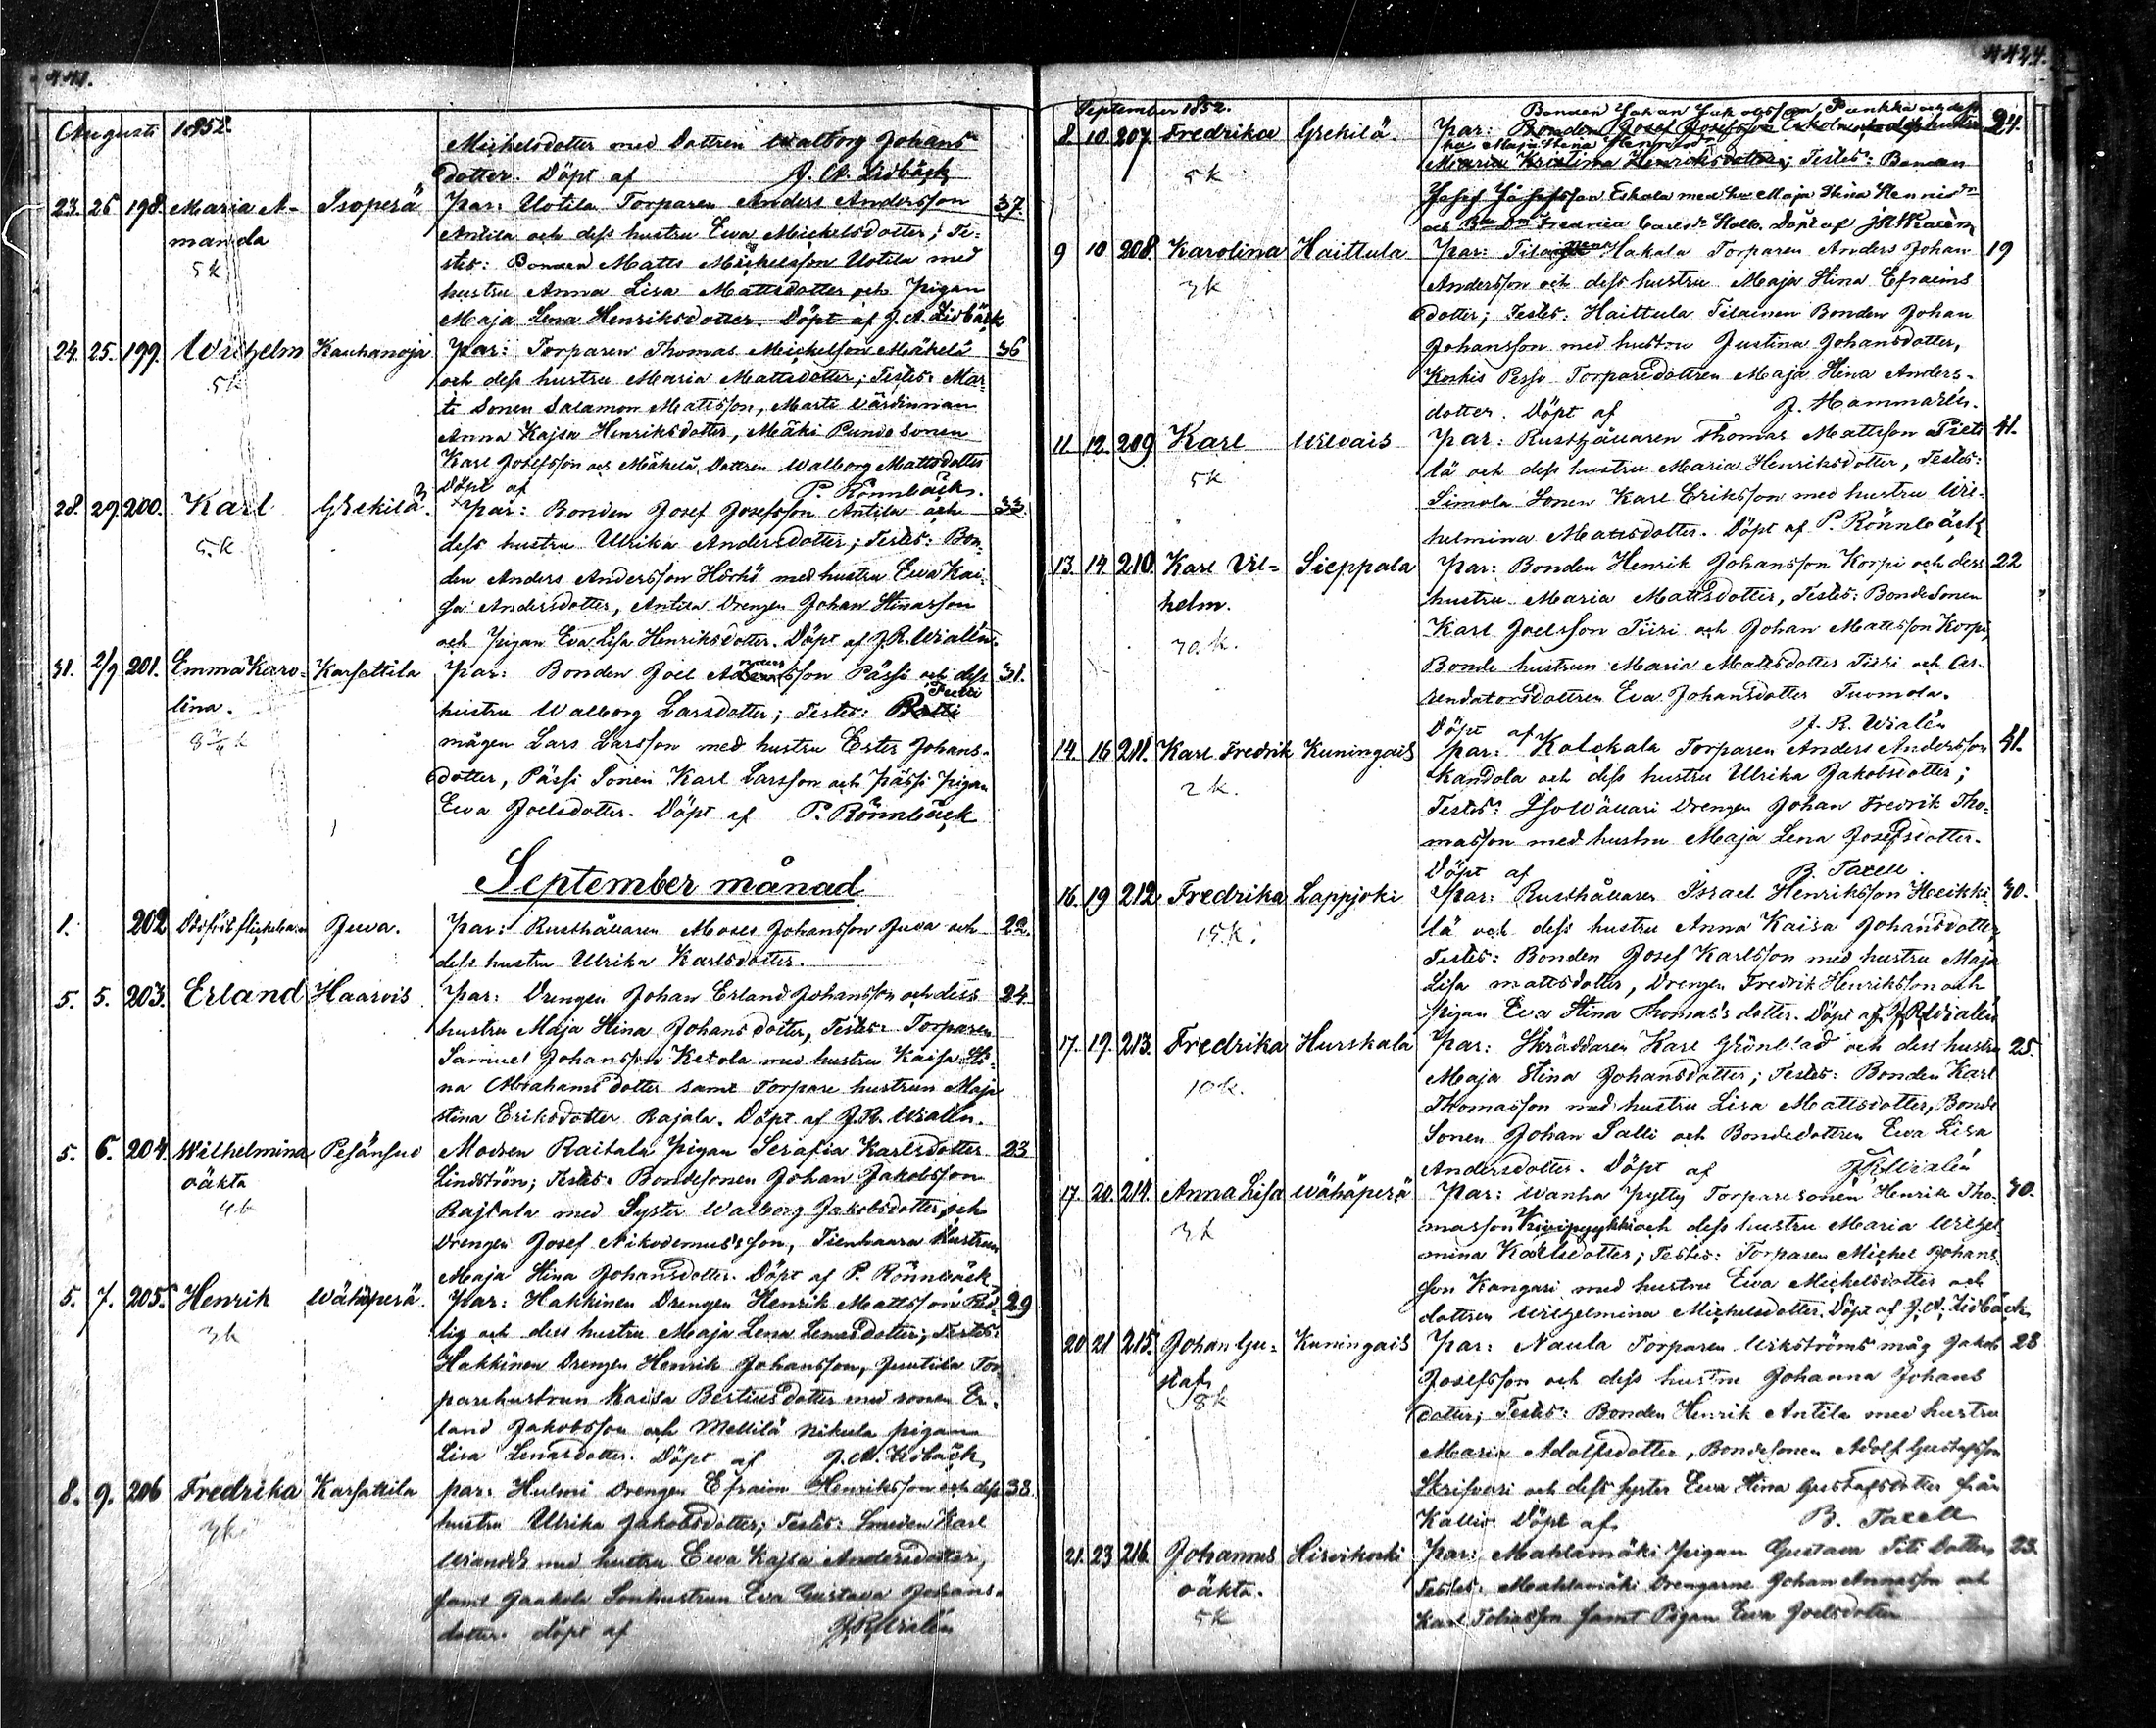 441.
Augusti 1852.
Michelsdotter med Dottren Walborg Johans
dotter. Döpt af J. A. Lidbäck
23. 25 198. Maria A- Isoperä Par: Uotila Torparen Anders Andersson 37.
manda Antila och dess hustru Ewa Michelsdotter; Te-
5k stes: Bonden Matts Michelsson Uotila med
hustru Anna Lisa Mattsdotter och Pigan
Maja Lena Henriksdotter. Döpt af J. A. Lidbäck
24. 25. 199. Wilhelm Kauhanoja Par: Torparen Thomas Michelsson Mäkelä 36
5k och dess hustru Maria Mattsdotter; Testes: Mar-
ti Sonen Salamon Mattsson, Marti Wärdinnan
Anna Kajsa Henriksdotter, Mäki Sonen
Karl Josefsson och Mäkelä Dottren Walborg Mattsdotter
Döpt af P. Rönnbäck.
28. 29. 200. Karl Grekilä. Par: Bonden Josef Josefsson Antila och 33.
5k. dess hustru Ulrika Andersdotter; Testes: Bon-
den Anders Andersson Hörkö med hustru Ewa Kai-
sa Andersdotter, Antila Drengen Johan Stinasson
och Pigan Eva Lisa Henriksdotter. Döpt af J. R. Wialén.
31. 2/9 201. Emma Karo- Karsattila Par: Bonden Joel Andersson Pässi och dess 31.
lina. hustru Walborg Larsdotter; Testes:
8 k mågen Lars Larsson med hustru Ester Johans-
dotter, Pässi Sonen Karl Larsson och Pässi Pigan
Ewa Joelsdotter. Döpt af P. Rönnbäck
September månad
1. 202 Juva. Par: Rusthållaren Moses Johansson Juva och 22.
dess hustru Ulrika Karlsdotter.
5. 5. 203. Erland Haarvis Par: Drengen Johan Erland Johansson och dess 24.
hustru Maja Stina Johansdotter, Testes: Torparen
Samuel Johansson Ketola med hustru Kaisa Sti-
na Abrahamsdotter samt Torpare hustrun Maja
Stina Eriksdotter Rajala. Döpt af J. R. Wialén.
5. 6. 204. Wilhelmina Pesänsuo Modren Raitala Pigan Serafia Karlsdotter 23
oäkta Lindström; Testes: Bondesonen Johan Jakobsson
4k Rajtala med Syster Walborg Jakobsdotter och
Drengen Josef Nikodemus'sson, Tienhaara hustrun
Maja Stina Johansdotter. Döpt af P. Rönnbäck
5. 7. 205. Henrik Wähäperä. Par: Hakkinen Drengen Henrik Mattsson 29
3k och dess hustru Maja Lena Lenasdotter; Testes:
Hakkinen Drengen Henrik Johansson, Juutila Tor-
parehustrun Kaisa Bertilsdotter med sonen Er-
land Jakobsson och Mellilä Nikula pigan
Lisa Lenasdotter. Döpt af J. A. Lidbäck
8. 9. 206 Fredrika Karsattila Par: Hulmi Drengen Efraim Henriksson och dess 38.
3k hustru Ulrika Jakobsdotter; Testes: Smeden Karl
med hustru Ewa Kajsa Andersdotter,
samt Jaakola Sonhustrun Eva Gustava Johans-
dotter. döpt af J. R. Wialén
442.
September 1852.
Bonden Johan Jakobsson Punkka och dess
8. 10 207. Fredrika Grekilä. Par: Bonden Josef Josefsson Eskola och dess hustru 24.
hu Maja Stina
5k Maria Kristina Henriksdotter; Testes: Bonden
Josef Josefsson Eskola med hu Maja Stina
och Fredrica Carls Döpt af J R Wialén
9 10 208. Karolina Haittula Par: Hakala Torparen Anders Johan 19
3k Andersson och dess hustru Maja Stina Efraims
dotter; Testes: Haittula Tilainen Bonden Johan
Johansson med hustru Justina Johansdotter,
Koskis Torparedottren Maja Stina Anders-
dotter. Döpt af J. Hammarén.
11. 12. 209 Karl Wilvais Par: Rusthållaren Thomas Mattsson Pieti- 41.
lä och dess hustru Maria Henriksdotter, Testes:
5k Simola Sonen Karl Eriksson med hustru Wil-
helmina Mattsdotter. Döpt af P. Rönnbäck
13. 14 210. Karl Vil- Sieppala Par: Bonden Henrik Johansson Korpi och dess 22
helm. hustru Maria Mattsdotter, Testes: Bondesonen
10. k. Karl Joelsson Tiiri och Johan Mattsson Korpi,
Bonde hustrun Maria Mattsdotter Tiiri och Ar-
rendatorsdottren Eva Johansdotter Tuomola.
Döpt af J. R. Wialén
14. 16 211. Karl Fredrik Kuningais Par: Kolckala Torparen Anders Andersson 41.
2k. Kandola och dess hustru Ulrika Jakobsdotter;
Testes: Drengen Johan Fredrik Tho-
masson med hustru Maja Lena Josefsdotter.
Döpt af B. Taxell.
16. 19 212. Fredrika Lappjoki Par: Rusthållaren Israel Henriksson Heikki- 40.
15. k. lä och dess hustru Anna Kaisa Johansdotter,
Testes: Bonden Josef Karlsson med hustru Maja
Lisa Mattsdotter, Drengen Fredrik Henriksson och
Pigan Eva Stina Thomas's dotter. Döpt af J R Wialén
17. 19. 213. Fredrika Hurskala Par: Skräddaren Karl Grönblad och dess hustru 25.
10k. Maja Stina Johansdotter; Testes: Bonden Karl
Thomasson med hustru Lisa Mattsdotter, Bonde
Sonen Johan Salli och Bondedottren Ewa Lisa
Andersdotter. Döpt af J R Wialén
17. 20. 214. Anna Lisa Wähäperä Par: Wanha Pytty Torparesonen Henrik Tho- 30.
3k masson och dess hustru Maria Wilhel-
mina Karlsdotter; Testes: Torparen Michel Johans-
son Kangari med hustru Ewa Michelsdotter och
dottren Wilhelmina Michelsdotter. Döpt af J. A. Lidbäck
20 21 215. Johan Gu- Kuningais Par: Naula Torparen Wikströms måg Jakob 28
staf Josefsson och dess hustru Johanna Johans
8k dotter; Testes: Bonden Henrik Antila med hustru
Maria Adolfsdotter, Bondesonen Adolf Gustafsson
Skrifvari och dess syster Ewa Stina Gustafsdotter från
Kallio. Döpt af B. Taxell
21. 23 216. Johannes Hirvikoski Par: Mahlamäki Pigan Gustava Dotter, 23.
oäkta. Testes: Mahlamäki Drengarne Johan Annasson och
5k Karl Tobiasson samt Pigan Ewa Joelsdotter